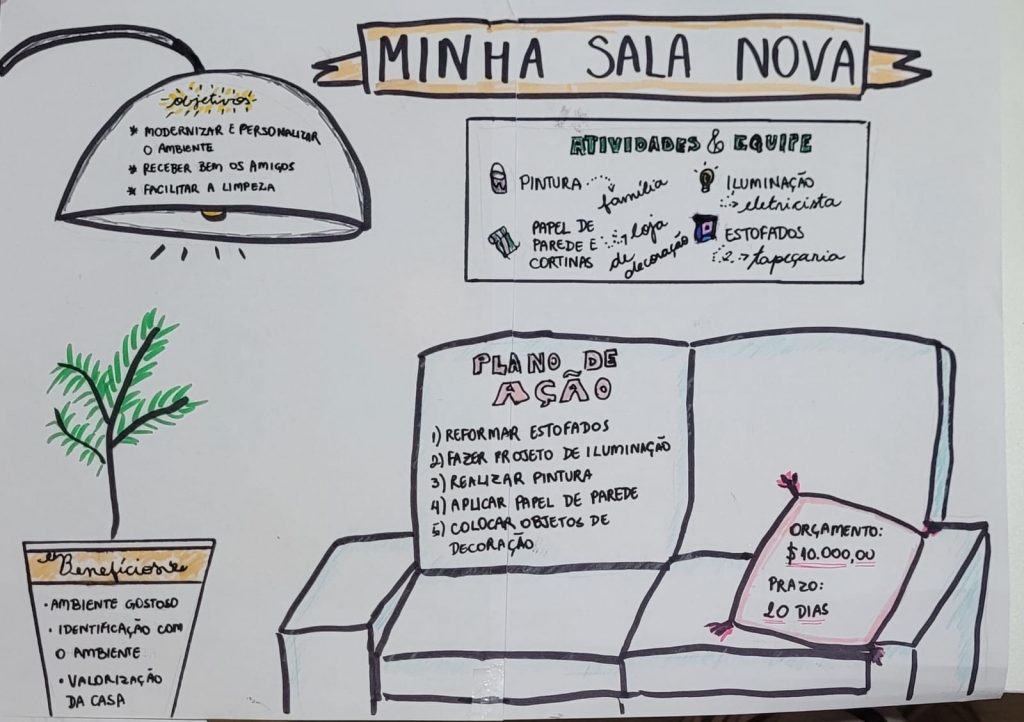 MINHA SALA NOVA
objetivos
* MODERNIZAR E PERSONALIZAR
O AMBIENTE
* RECEBER BEM OS AMIGOS
* FACILITAR A LIMPEZA
ATIVIDADES & EQUIPE
PINTURA
família
PAPEL DE
PAREDE E
CORTINAS
loja
de
decoração
ILUMINAÇÃO
eletricista
ESTOFADOS
tapeçaria
PLANO DE
AÇÃO
1) REFORMAR ESTOFADOS
2) FAZER PROJETO DE ILUMINAÇÃO
3) REALIZAR PINTURA
4) APLICAR PAPEL DE PAREDE
5) COLOCAR OBJETOS DE
DECORAÇÃO
ORÇAMENTO:
$10.000,00
PRAZO:
20 DIAS
Benefícios
• AMBIENTE GOSTOSO
• IDENTIFICAÇÃO COM
O AMBIENTE
• VALORIZAÇÃO
DA CASA